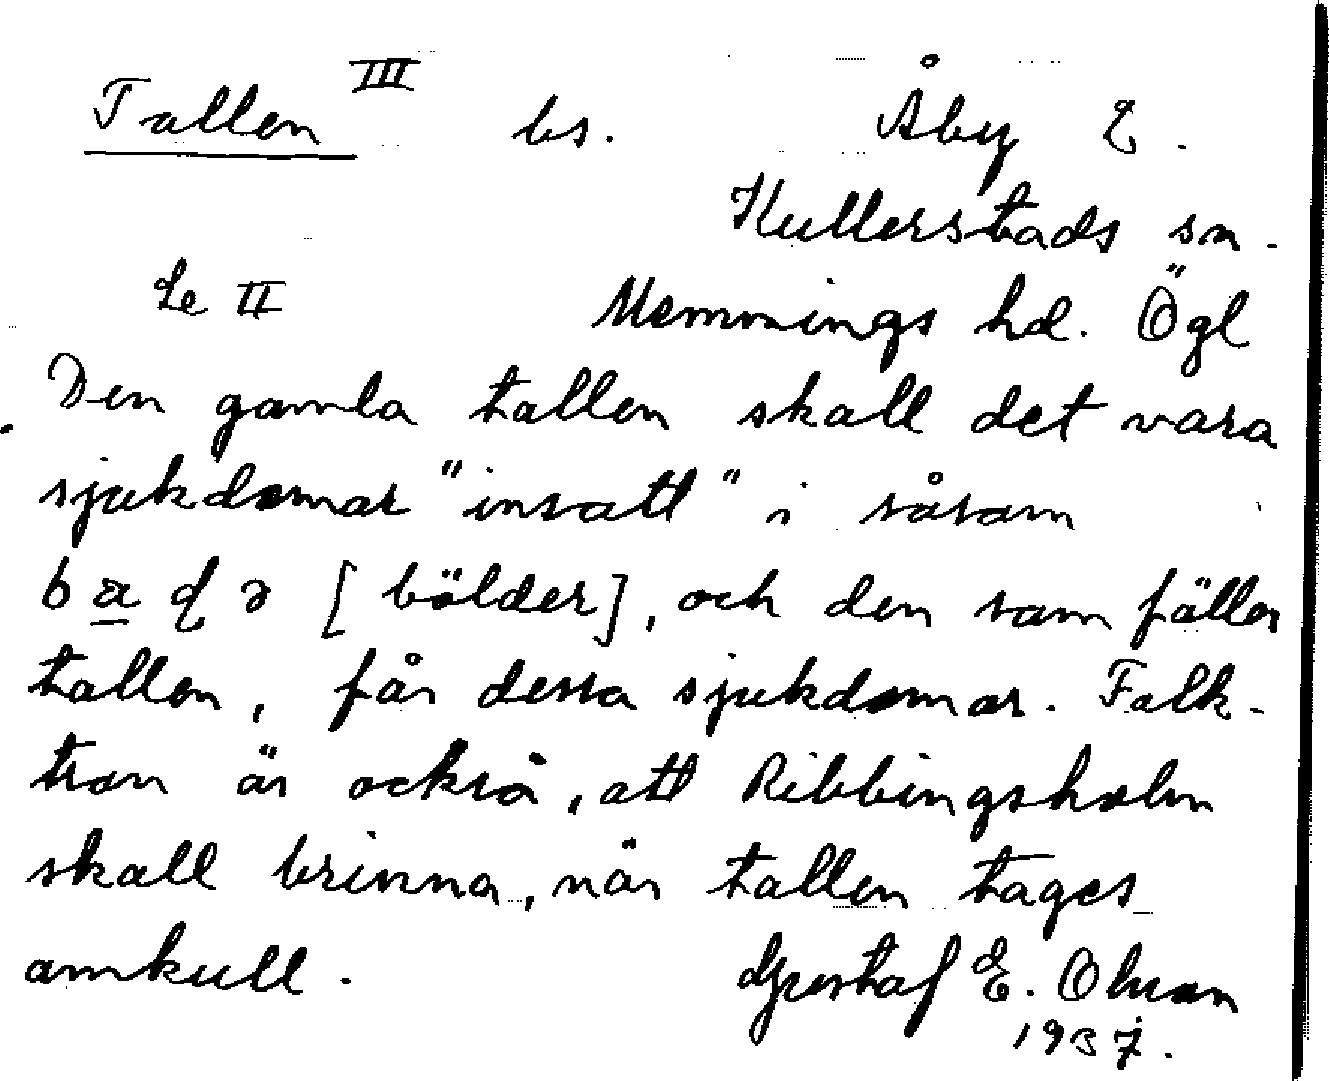 Tallen III bs. Åby E.
Kullerstads sn.
Se II Memmings hd. Ögl
Den gamla tallen skall det vara
sjukdomar "insatt" i såsom
b a̲ ɖ ə [bölder], och den som fäller
tallen, får dessa sjukdomar. Folk-
tron är också, att Ribbingsholm
skall brinna, när tallen tages
omkull. Gustaf E. Olsson
1937.